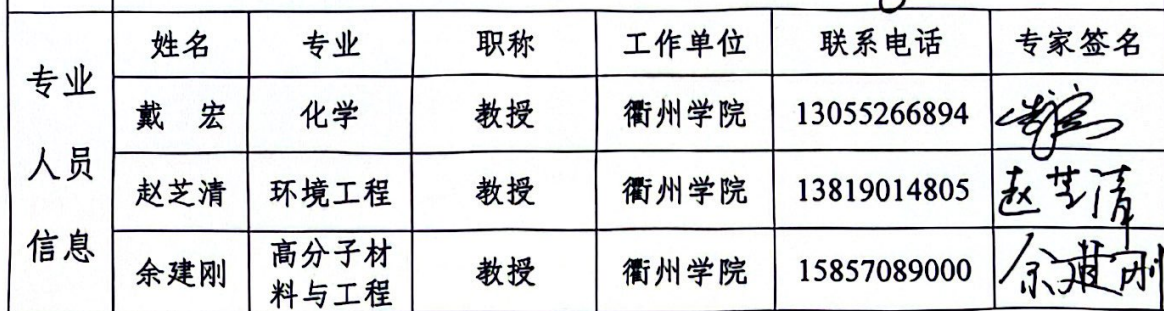 姓名 专业 职称 工作单位 联系电话 专家签名
专业人员信息
戴 宏 化学 教授 衢州学院 13055266894
赵芝清 环境工程 教授 衢州学院 13819014805 赵芝清
余建刚 高分子材料与工程 教授 衢州学院 15857089000 余建刚